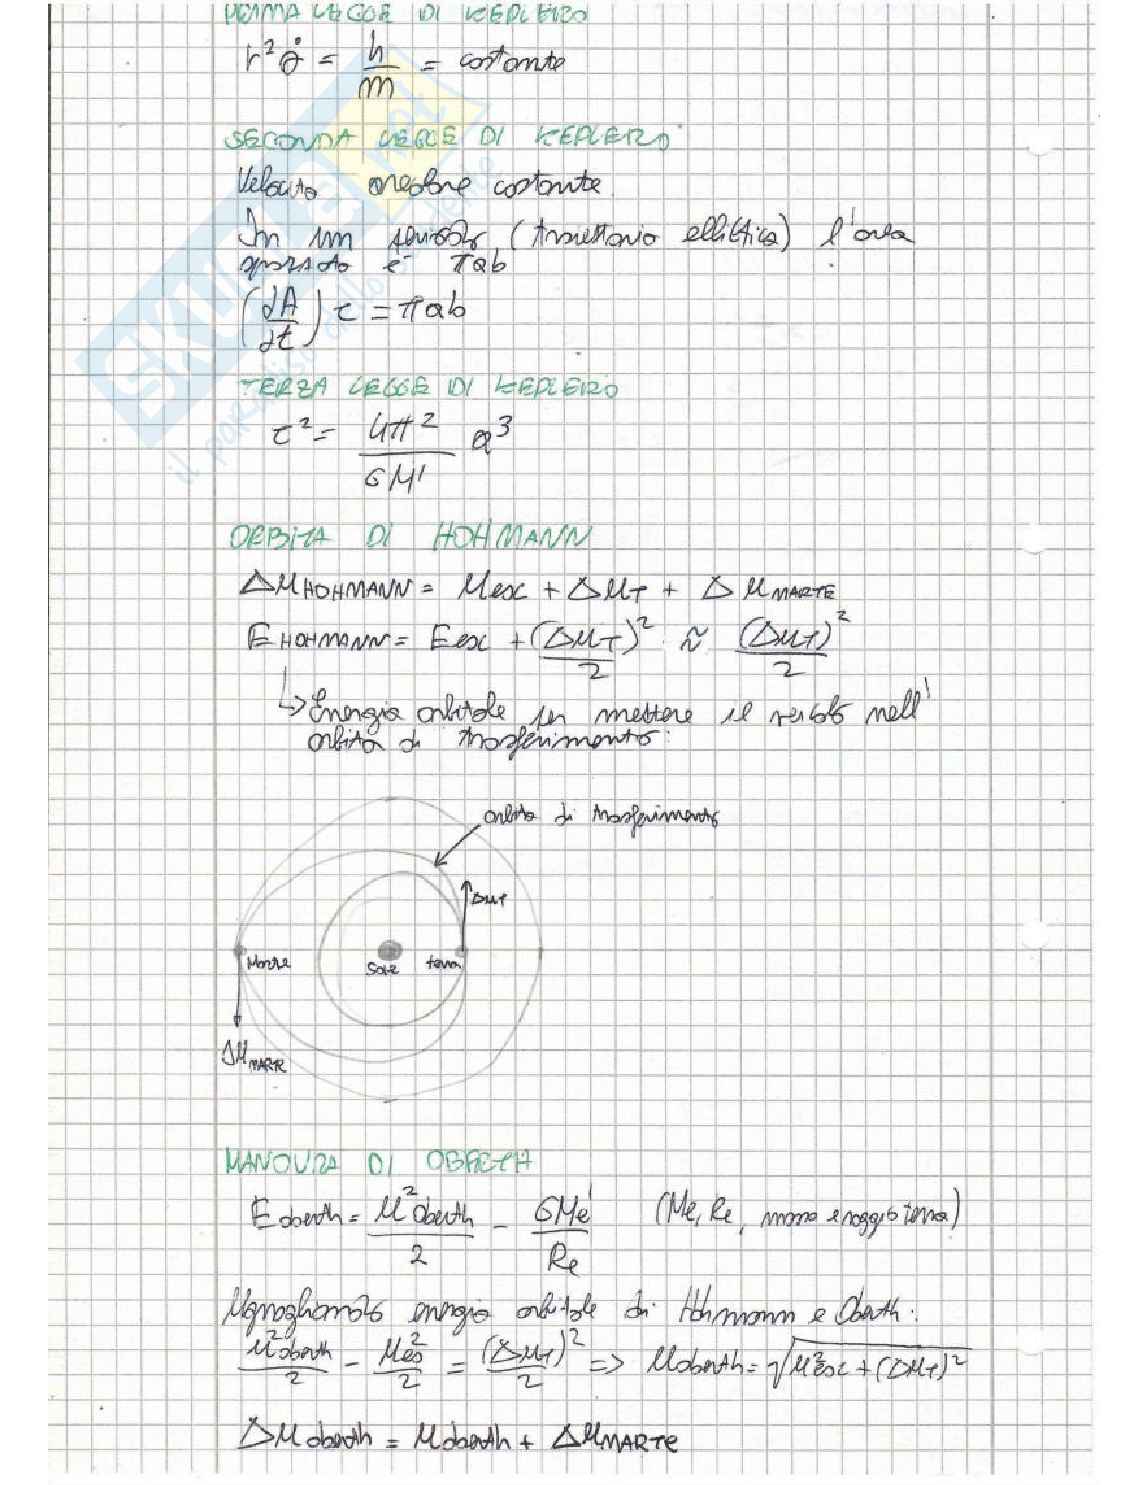 PRIMA LEGGE DI KEPLERO
r²θ̇ = h/m = costante
SECONDA LEGGE DI KEPLERO
Velocità areolare costante.
In un periodo (traiettoria ellittica) l'area
spazzata è πab
(dA/dt) τ = πab
TERZA LEGGE DI KEPLERO
τ² = 4π²/GM' a³
ORBITA DI HOHMANN
ΔU HOHMANN = Uesc + ΔU_T + ΔU MARTE
E HOHMANN = Eesc + (ΔU_T)²/2 ≈ (ΔU_T)²/2
↳ Energia orbitale per mettere il veicolo nell'
orbita di trasferimento.
orbita di trasferimento
ΔU_T
Marte
Sole
terra
ΔU MARTE
MANOVRA DI OBERTH
E oberth = U² oberth/2 - GMe/Re (Me, Re, massa e raggio terra)
Uguagliando energia orbitale di Hohmann e Oberth:
U² oberth/2 - U²esc/2 = (ΔU_T)²/2 => U oberth = √U²esc + (ΔU_T)²
ΔU oberth = U oberth + ΔU MARTE
SKUOLA.net
il paradiso dello studente